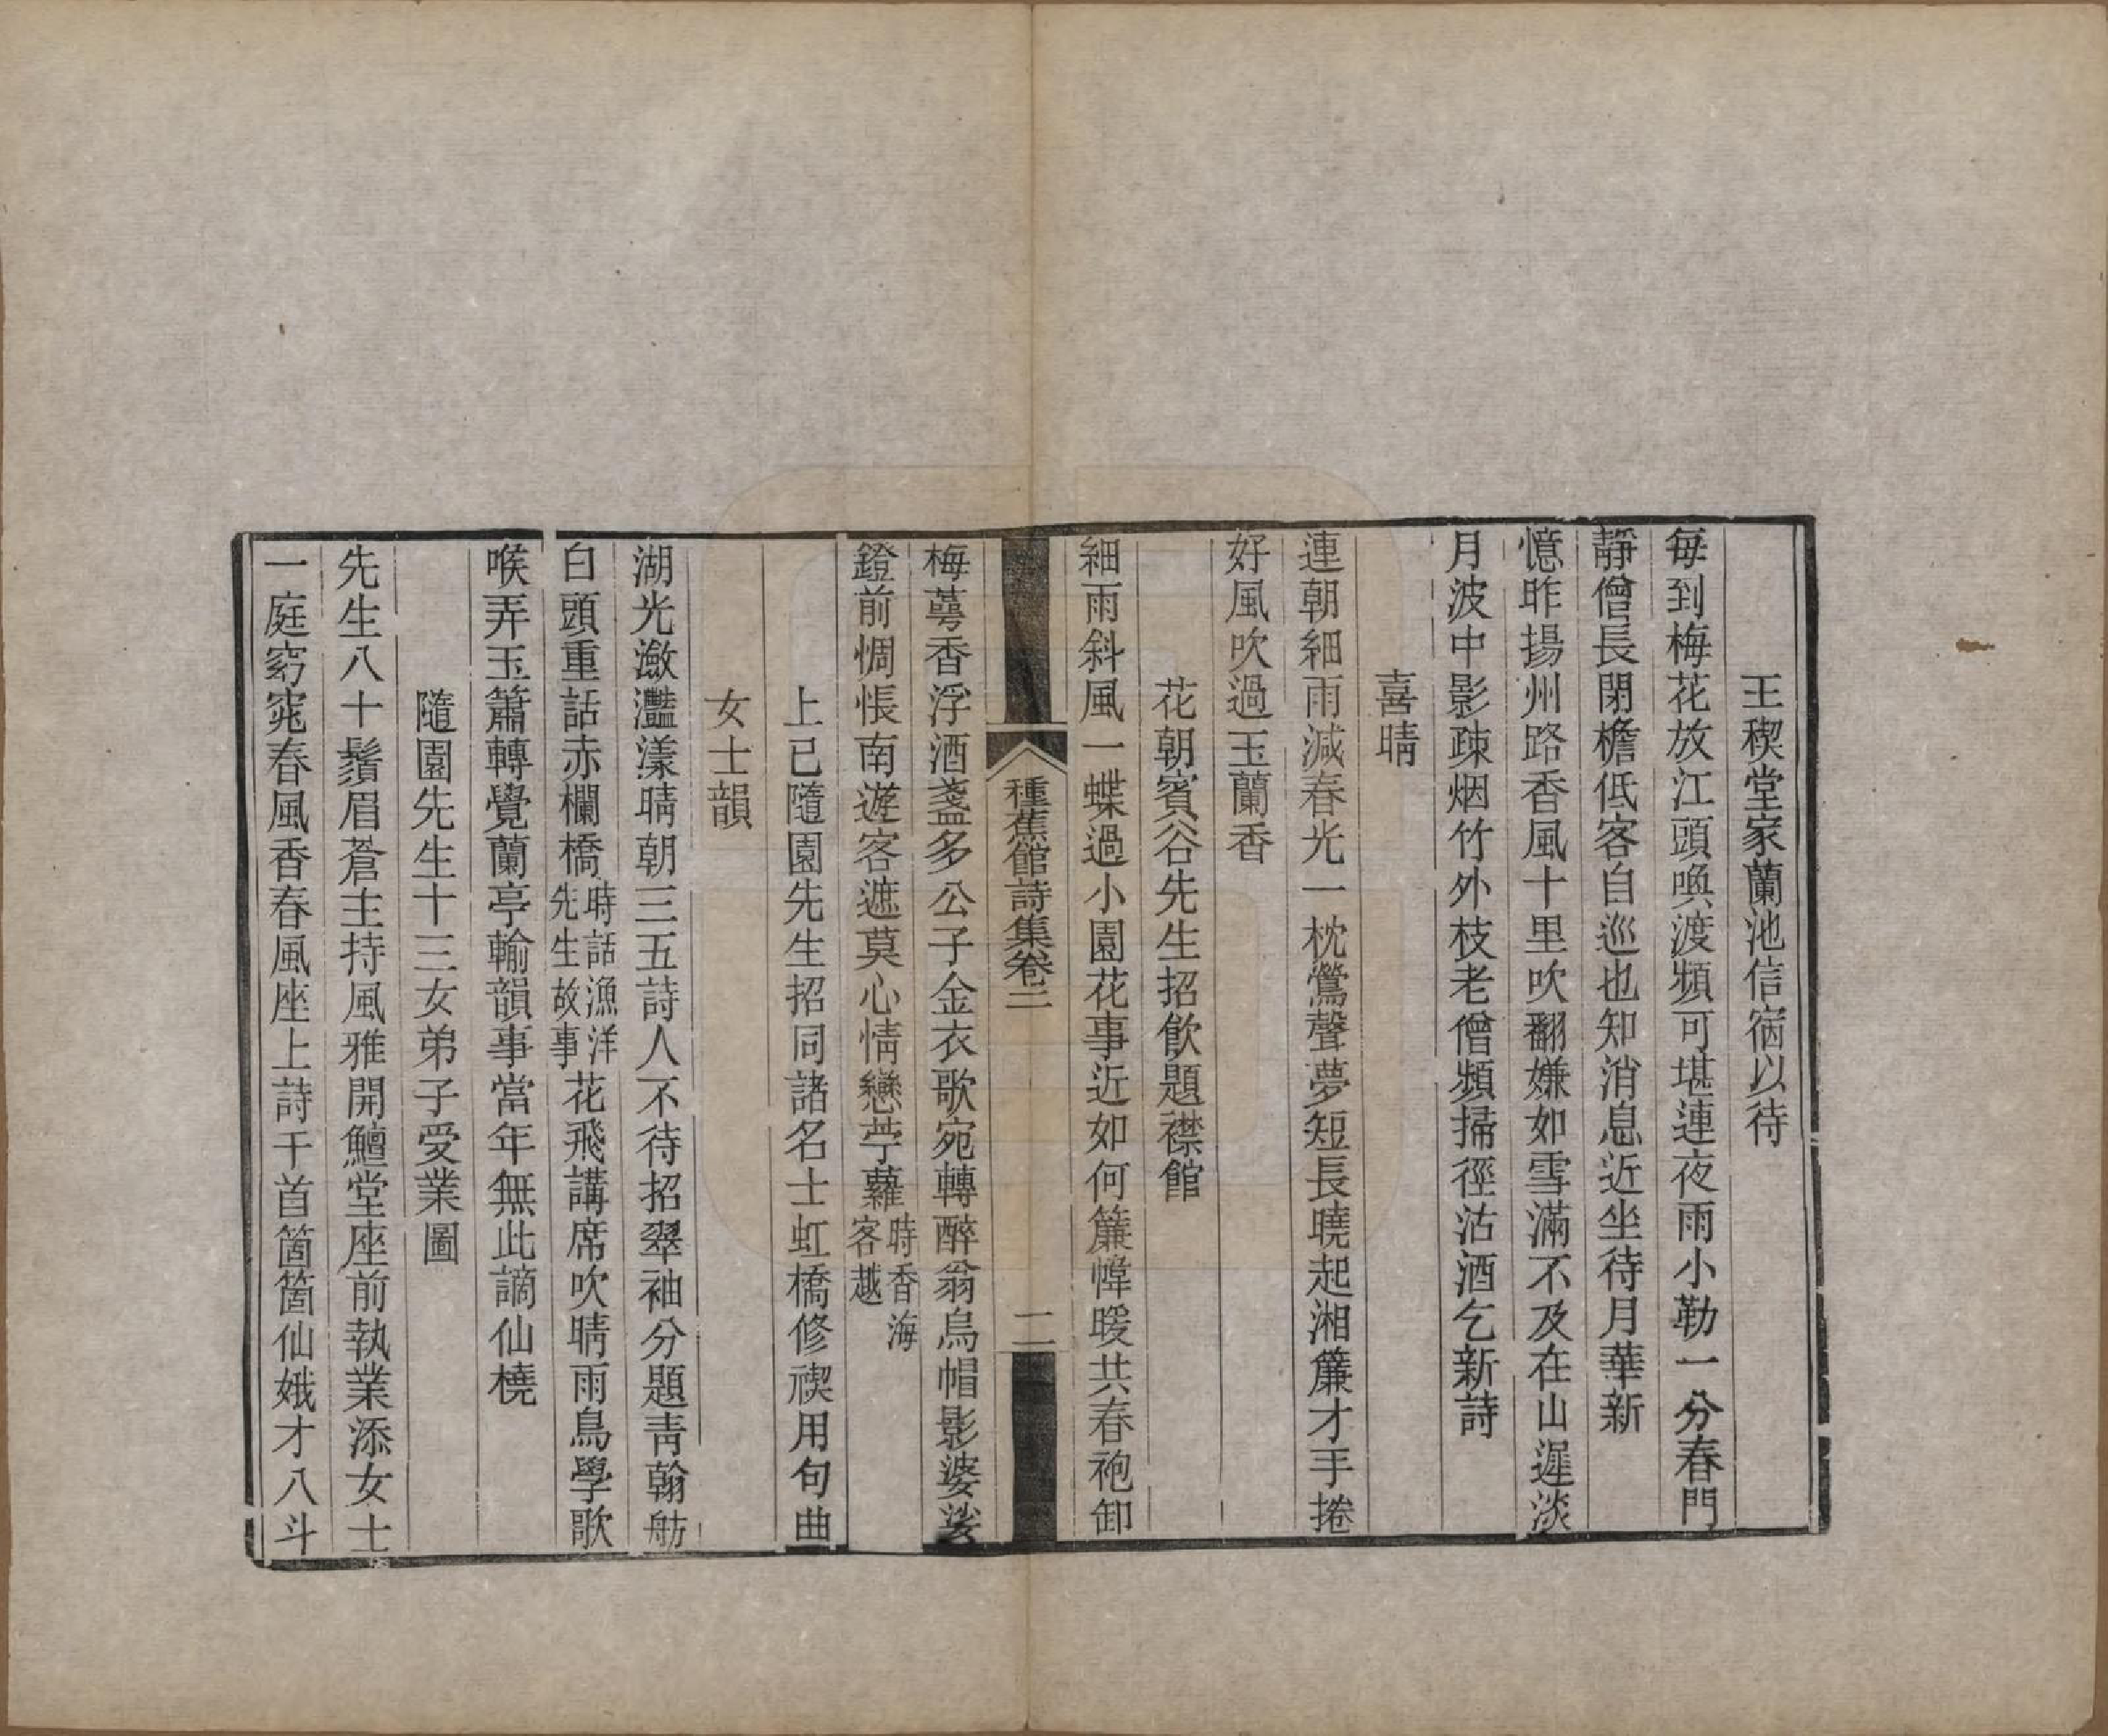 王稧堂家蘭池信宿以待
每到梅花放江頭喚渡頻可堪連夜雨小勒一分春門
靜僧長閉檐低客自巡也知消息近坐待月華新
憶昨揚州路香風十里吹翻嫌如雪滿不及在山遲淡
月波中影疎烟竹外枝老僧頻掃徑沽酒乞新詩
喜晴
連朝細雨減春光一枕鶯聲夢短長曉起湘簾才手捲
好風吹過玉蘭香
花朝賓谷先生招飲題襟館
細雨斜風一蝶過小園花事近如何簾幃暖共春袍卸
種蕉館詩集卷二
二
梅蕚香浮酒盞多公子金衣歌宛轉醉翁烏帽影婆娑
鐙前惆悵南遊客遮莫心情戀苧蘿時香海客越
上巳隨園先生招同諸名士虹橋修禊用句曲
女士韻
湖光瀲灩漾晴朝三五詩人不待招翠袖分題靑翰舫
白頭重話赤欄橋時話漁洋先生故事花飛講席吹晴雨鳥學歌
喉弄玉簫轉覺蘭亭輸韻事當年無此謫仙橈
隨園先生十三女弟子受業圖
先生八十鬚眉蒼主持風雅開鱣堂座前執業添女士
一庭窈窕春風香春風座上詩千首箇箇仙娥才八斗